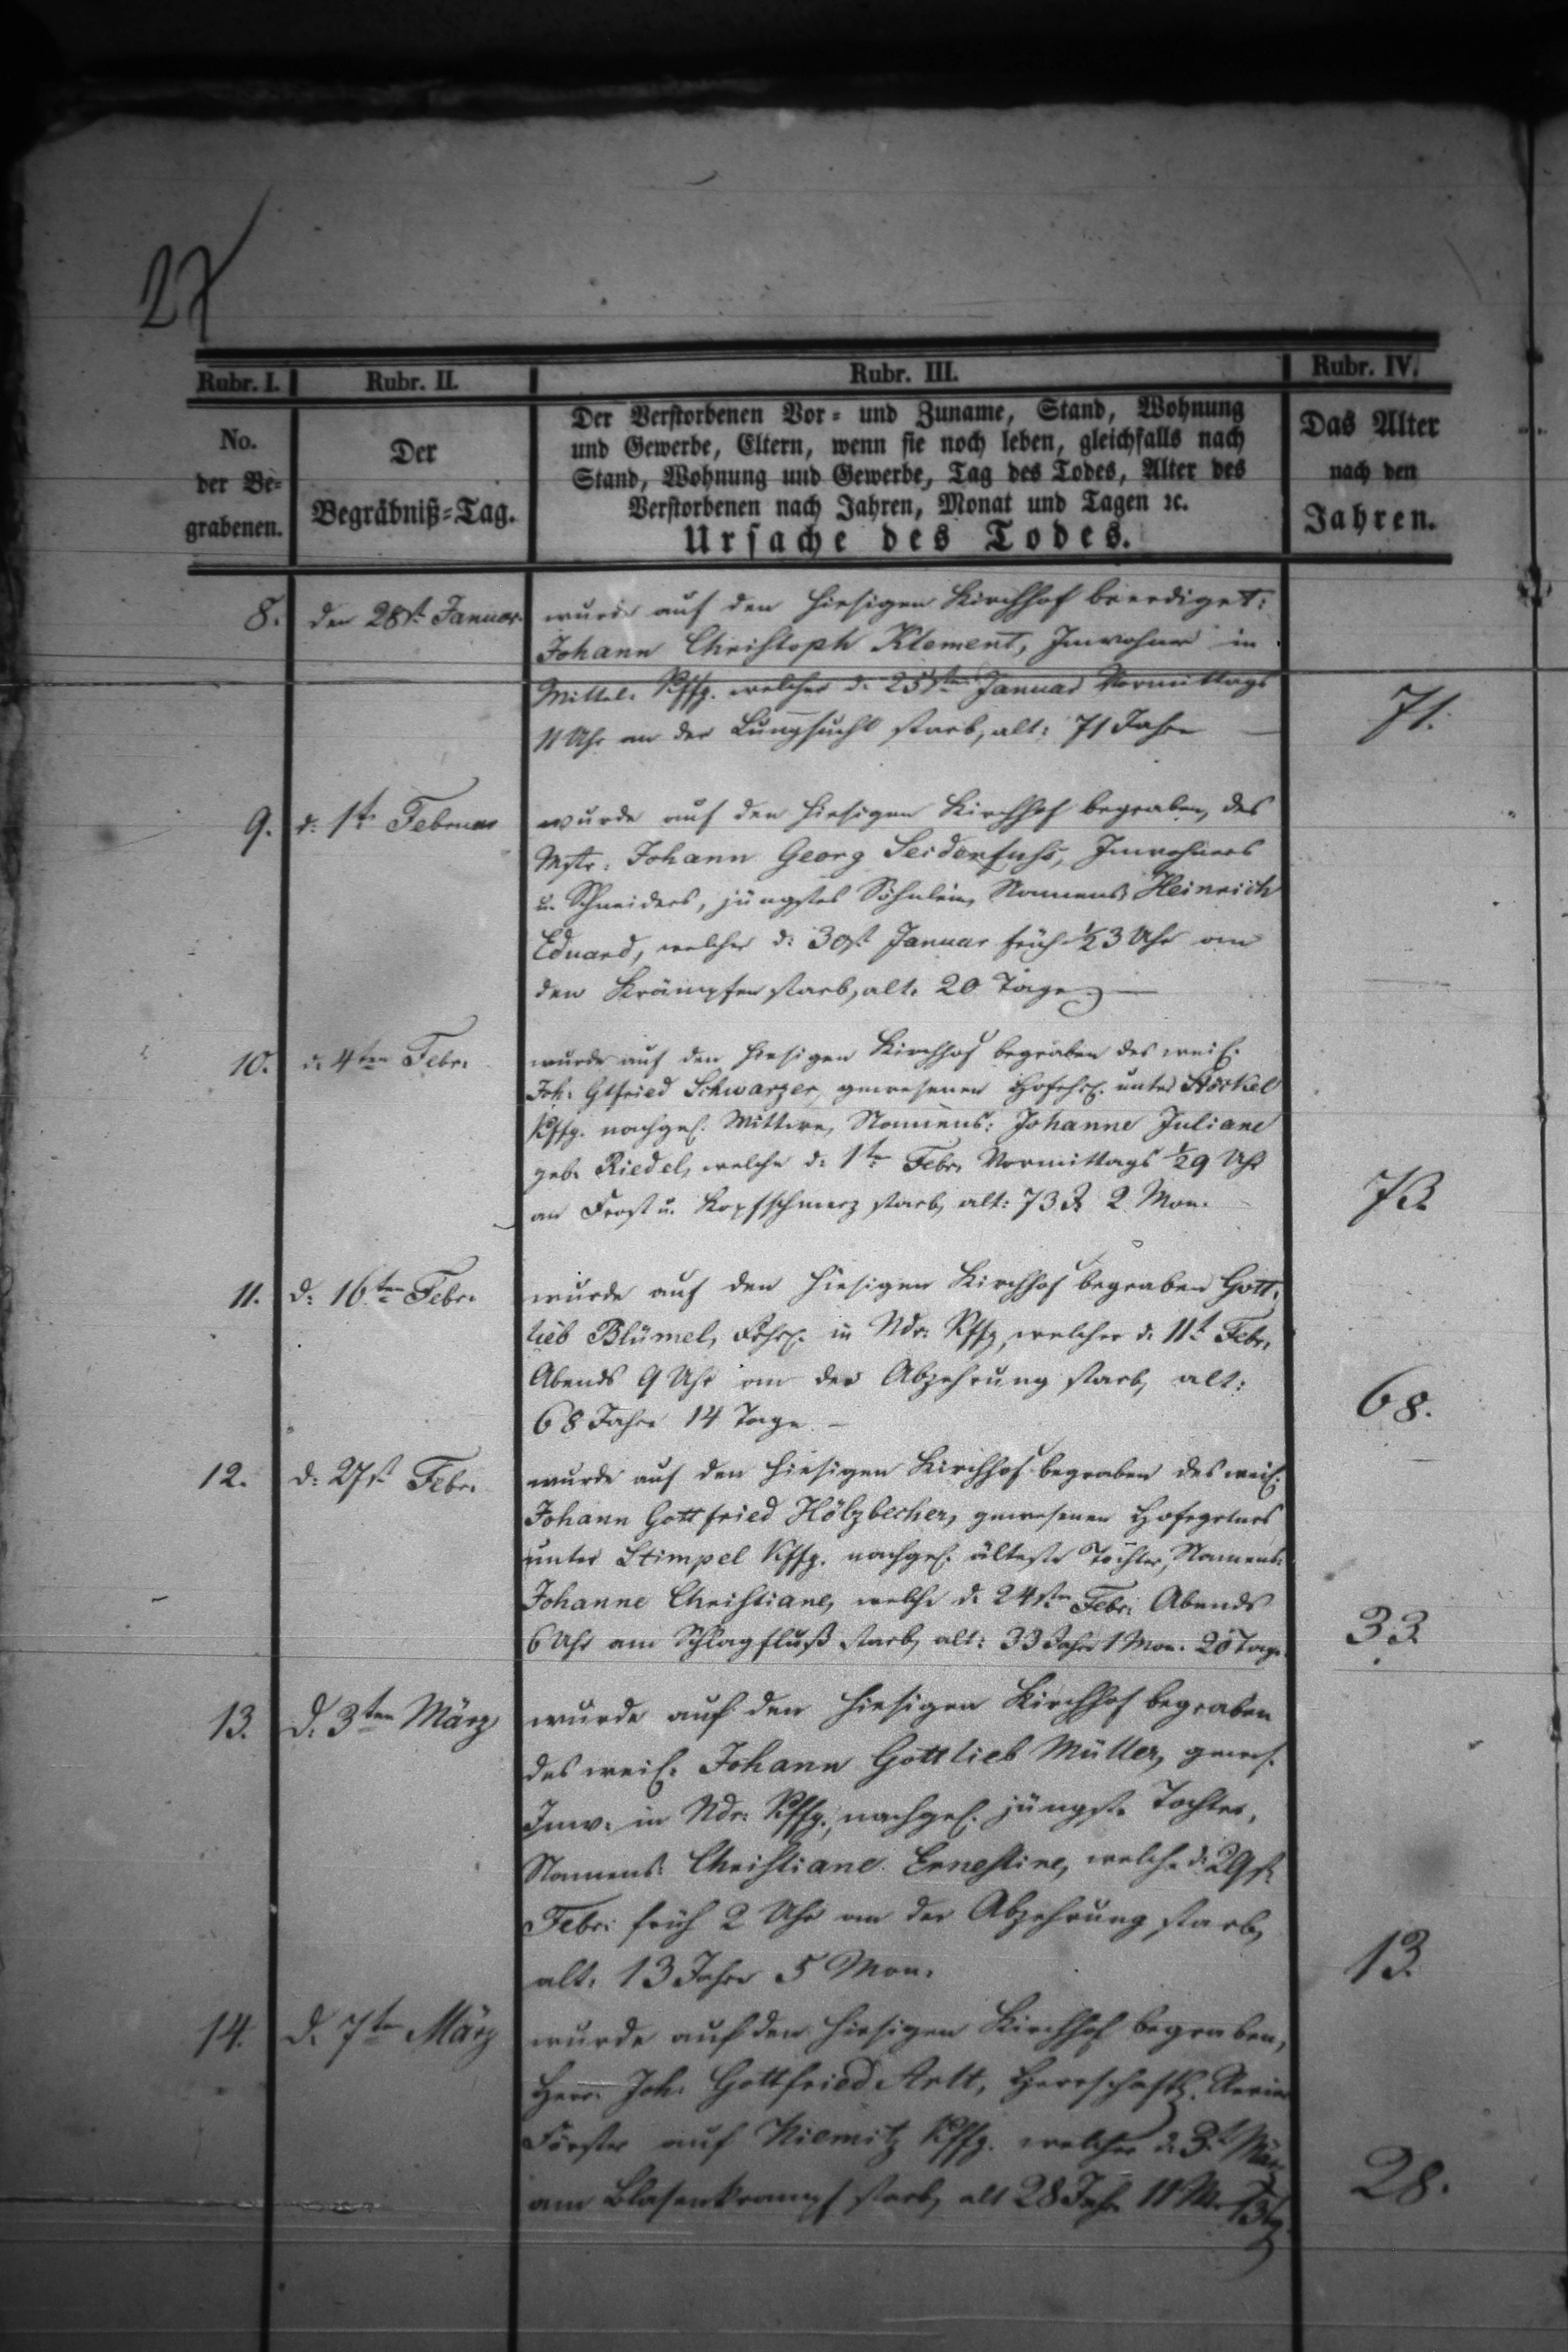 27
Rubr. I. Rubr. II. Rubr. III. Rubr. IV.
No. der Be-grabenen.
Der Begräbniß-Tag.
Der Verstorbenen Vor- und Zuname, Stand, Wohnung
und Gewerbe, Eltern, wenn sie noch leben, gleichfalls nach
Stand, Wohnung und Gewerbe, Tag des Todes, Alter des
Verstorbenen nach Jahren, Monat und Tagen ꝛc.
Ursache des Todes.
Das Alter
nach den
Jahren.
8. den 28st. Januar wurde auf den hiesigen Kirchhof beerdiget:
Johann Christoph Klement, Inwohner in
Mittel Kffg. welcher d. 25sten Januar Vormittags
11 Uhr an der Lungsucht starb, alt: 71 Jahre 71.
9. d. 1t Februar wurde auf den hiesigen Kirchhof begraben, des
Mstr. Johann Georg Seidenfuhs, Inwohners
u. Schneiders, jüngstes Söhnlein, Namens Heinrich
Eduard, welcher d. 30st Januar früh ½3 Uhr an
den Krämpfen starb, alt. 20 Tage.
10. d. 4ten Febr. wurde auf den hiesigen Kirchhof begraben des weil.
Joh. Gtfried Schwarzer, gewesenen unter Störkel
Kffg. nachgel. Wittwe, Namens: Johanne Juliane
geb. Riedel, welche d. 1t Febr. Vormittags ½9 Uhr
an Frost u. Kopfschmerz starb, alt: 73 J. 2 Mon. 73.
11. d. 16ten Febr. wurde auf den hiesigen Kirchhof begraben Gott-
lieb Blümel, in Ndr. Kffg, welcher d. 11t Febr.
Abends 9 Uhr an der Abzehrung starb, alt:
68 Jahre 14 Tage. 68.
12. d. 27st Febr. wurde auf den hiesigen Kirchhof begraben des weil.
Johann Gottfried Hölzbecher, gewesenen
unter Stimpel Kffg. nachgel. älteste Tochter, Namens:
Johanne Christiane, welche d. 24sten Febr. Abends
6 Uhr am Schlagfluß starb, alt: 33 Jahre 1 Mon. 20 Tage. 33.
13. d. 3ten März wurde auf den hiesigen Kirchhof begraben
des weil. Johann Gottlieb Müller, gewes.
Inw. in Ndr. Kffg., nachgel. jüngste Tochter,
Namens: Christiane Ernestine, welche d. 29st.
Febr. früh 2 Uhr an der Abzehrung starb,
alt. 13 Jahre 5 Mon. 13.
14. d. 7ten März wurde auf den hiesigen Kirchhof begraben,
Herr Joh. Gottfried Artt, Herrschaftl. Revier
Förster auf Niemitz Kffg. welcher d. 3t März
am Blasenkrampf starb, alt 28 Jahr 11 M. 28.